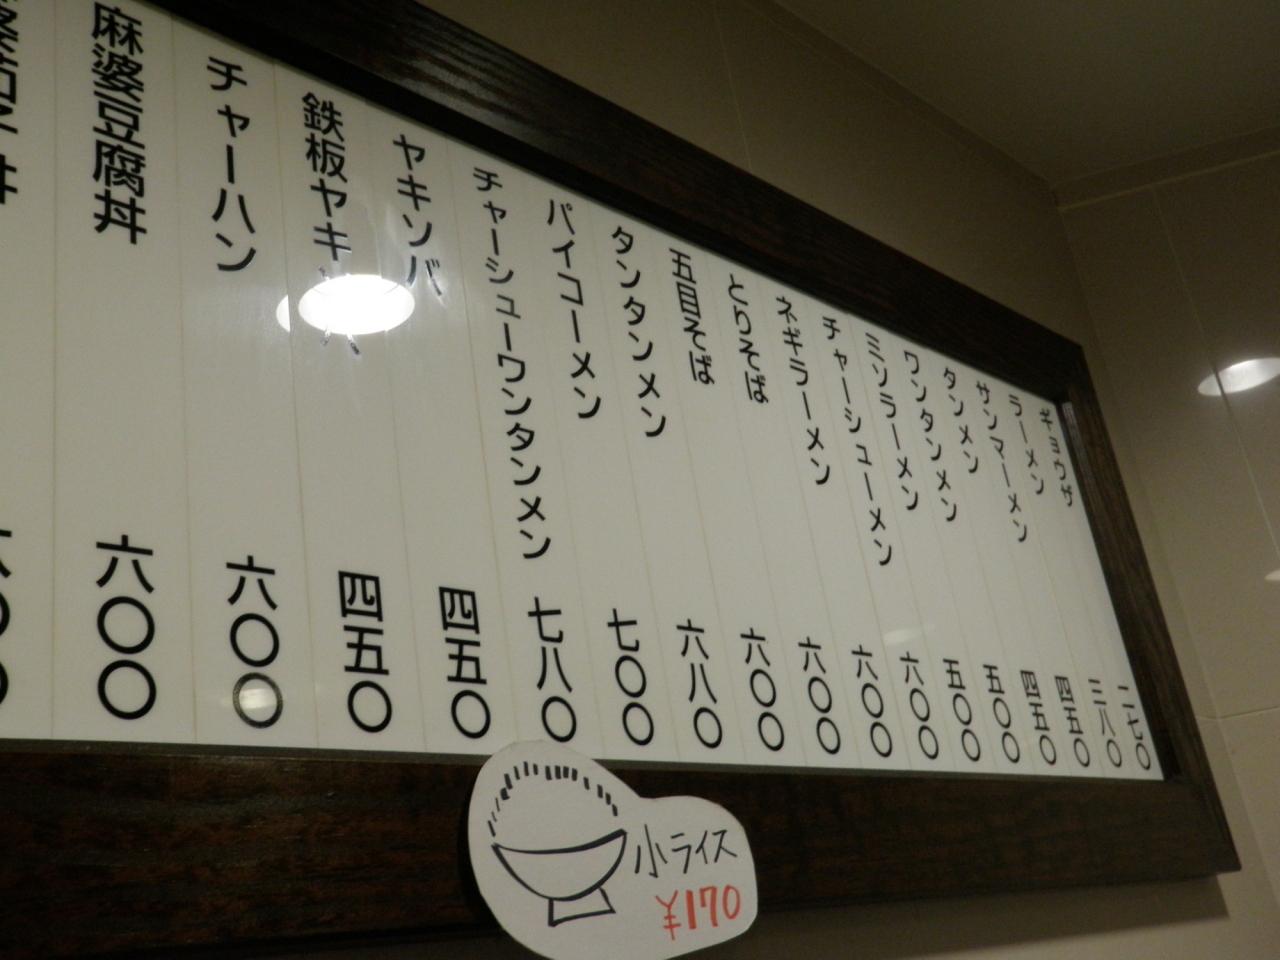 ギョウザ 二七〇
ラーメン 三八〇
サンマーメン 四五〇
タンメン 四五〇
ワンタンメン 五〇〇
ミソラーメン 五〇〇
チャーシューメン 六〇〇
ネギラーメン 六〇〇
とらそば 六〇〇
五目そば 六〇〇
タンタンメン 六八〇
パイコーメン 七〇〇
チャーシューワンタンメン 七八〇
ヤキソバ 四五〇
鉄板ヤキソバ 四五〇
チャーハン 六〇〇
麻婆豆腐丼 六〇〇
小ライス
¥170